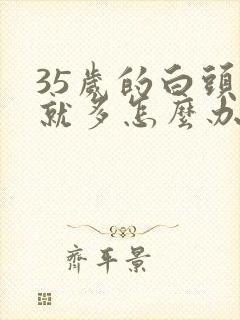 35歲的白頭
就多怎麼办
齊平景